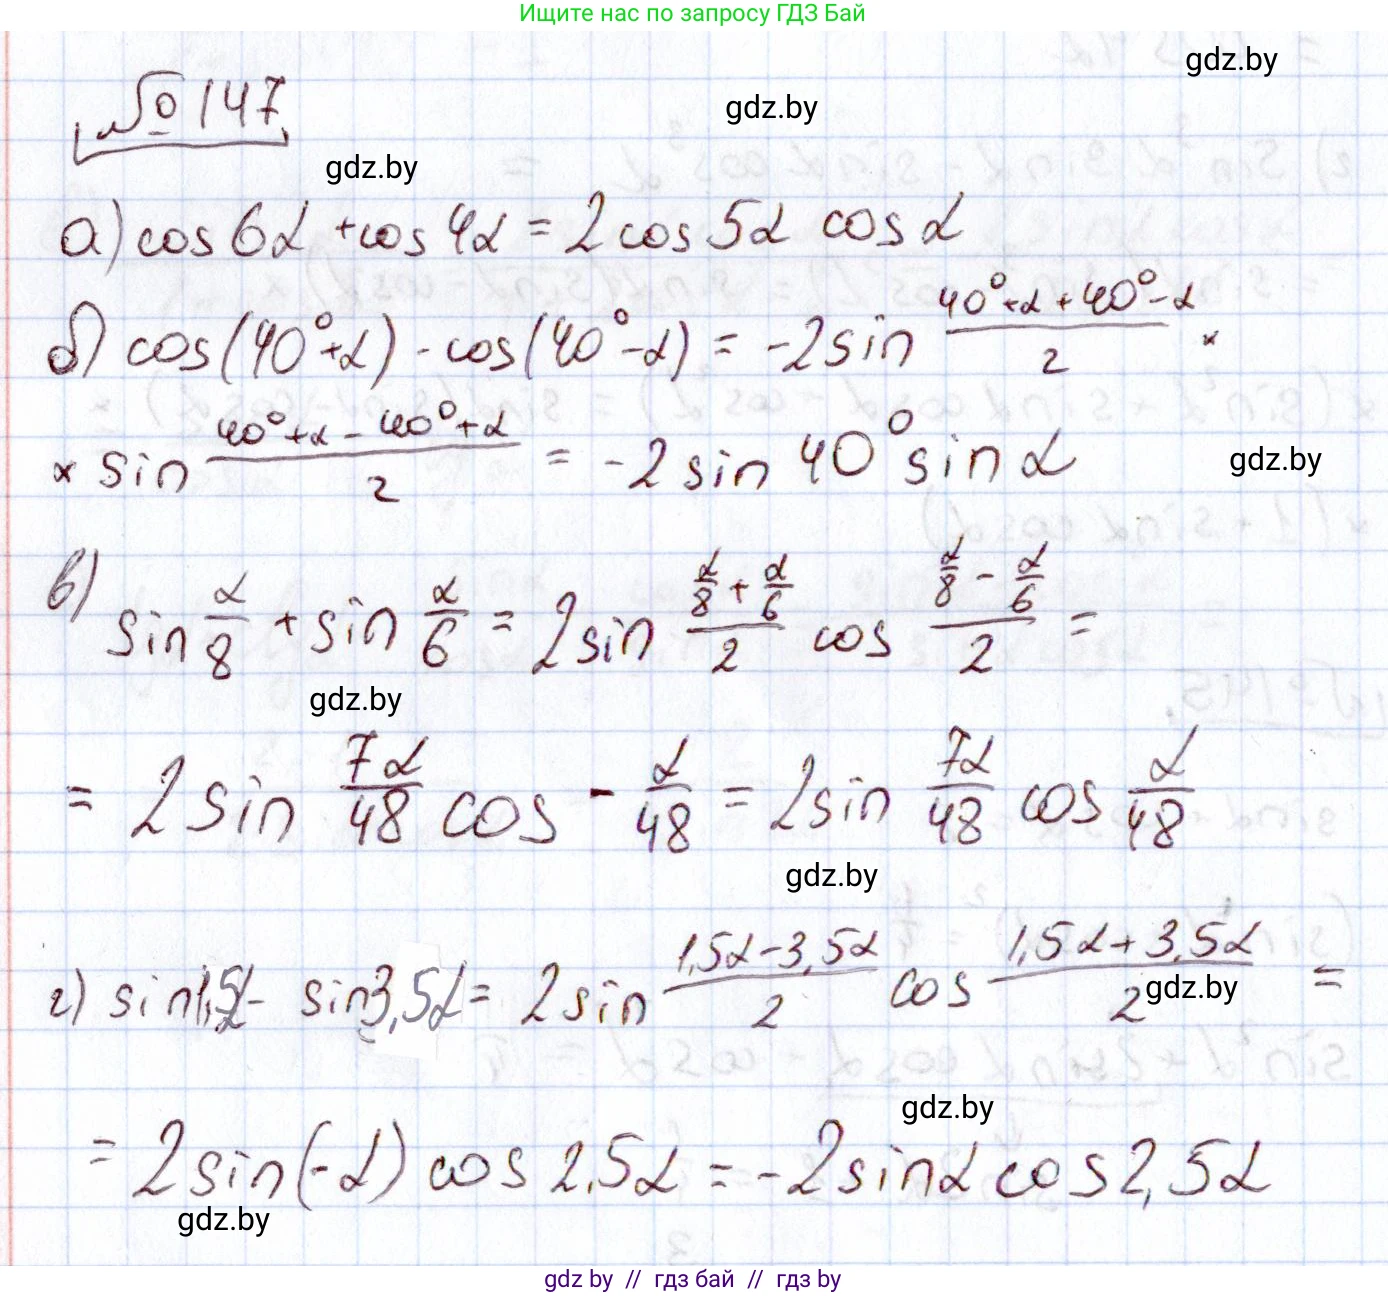 Ищите нас по запросу ГДЗ Бай
gdz.by
gdz.by
№147
gdz.by
а) cos 6α + cos 4α = 2 cos 5α cos α
б) cos(40°+α) - cos(40°-α) = -2 sin (40°+α+40°-α)/2 ×
× sin (40°+α-40°+α)/2 = -2 sin 40° sin α
gdz.by
в) sin α/8 + sin α/6 = 2 sin (α/8 + α/6)/2 cos (α/8 - α/6)/2 =
gdz.by
= 2 sin 7α/48 cos - α/48 = 2 sin 7α/48 cos α/48
gdz.by
г) sin 1,5α - sin 3,5α = 2 sin (1,5α-3,5α)/2 cos (1,5α+3,5α)/2 =
gdz.by
gdz.by
= 2 sin(-α) cos 2,5α = -2 sin α cos 2,5α
gdz.by
gdz by // гдз бай // гдз by